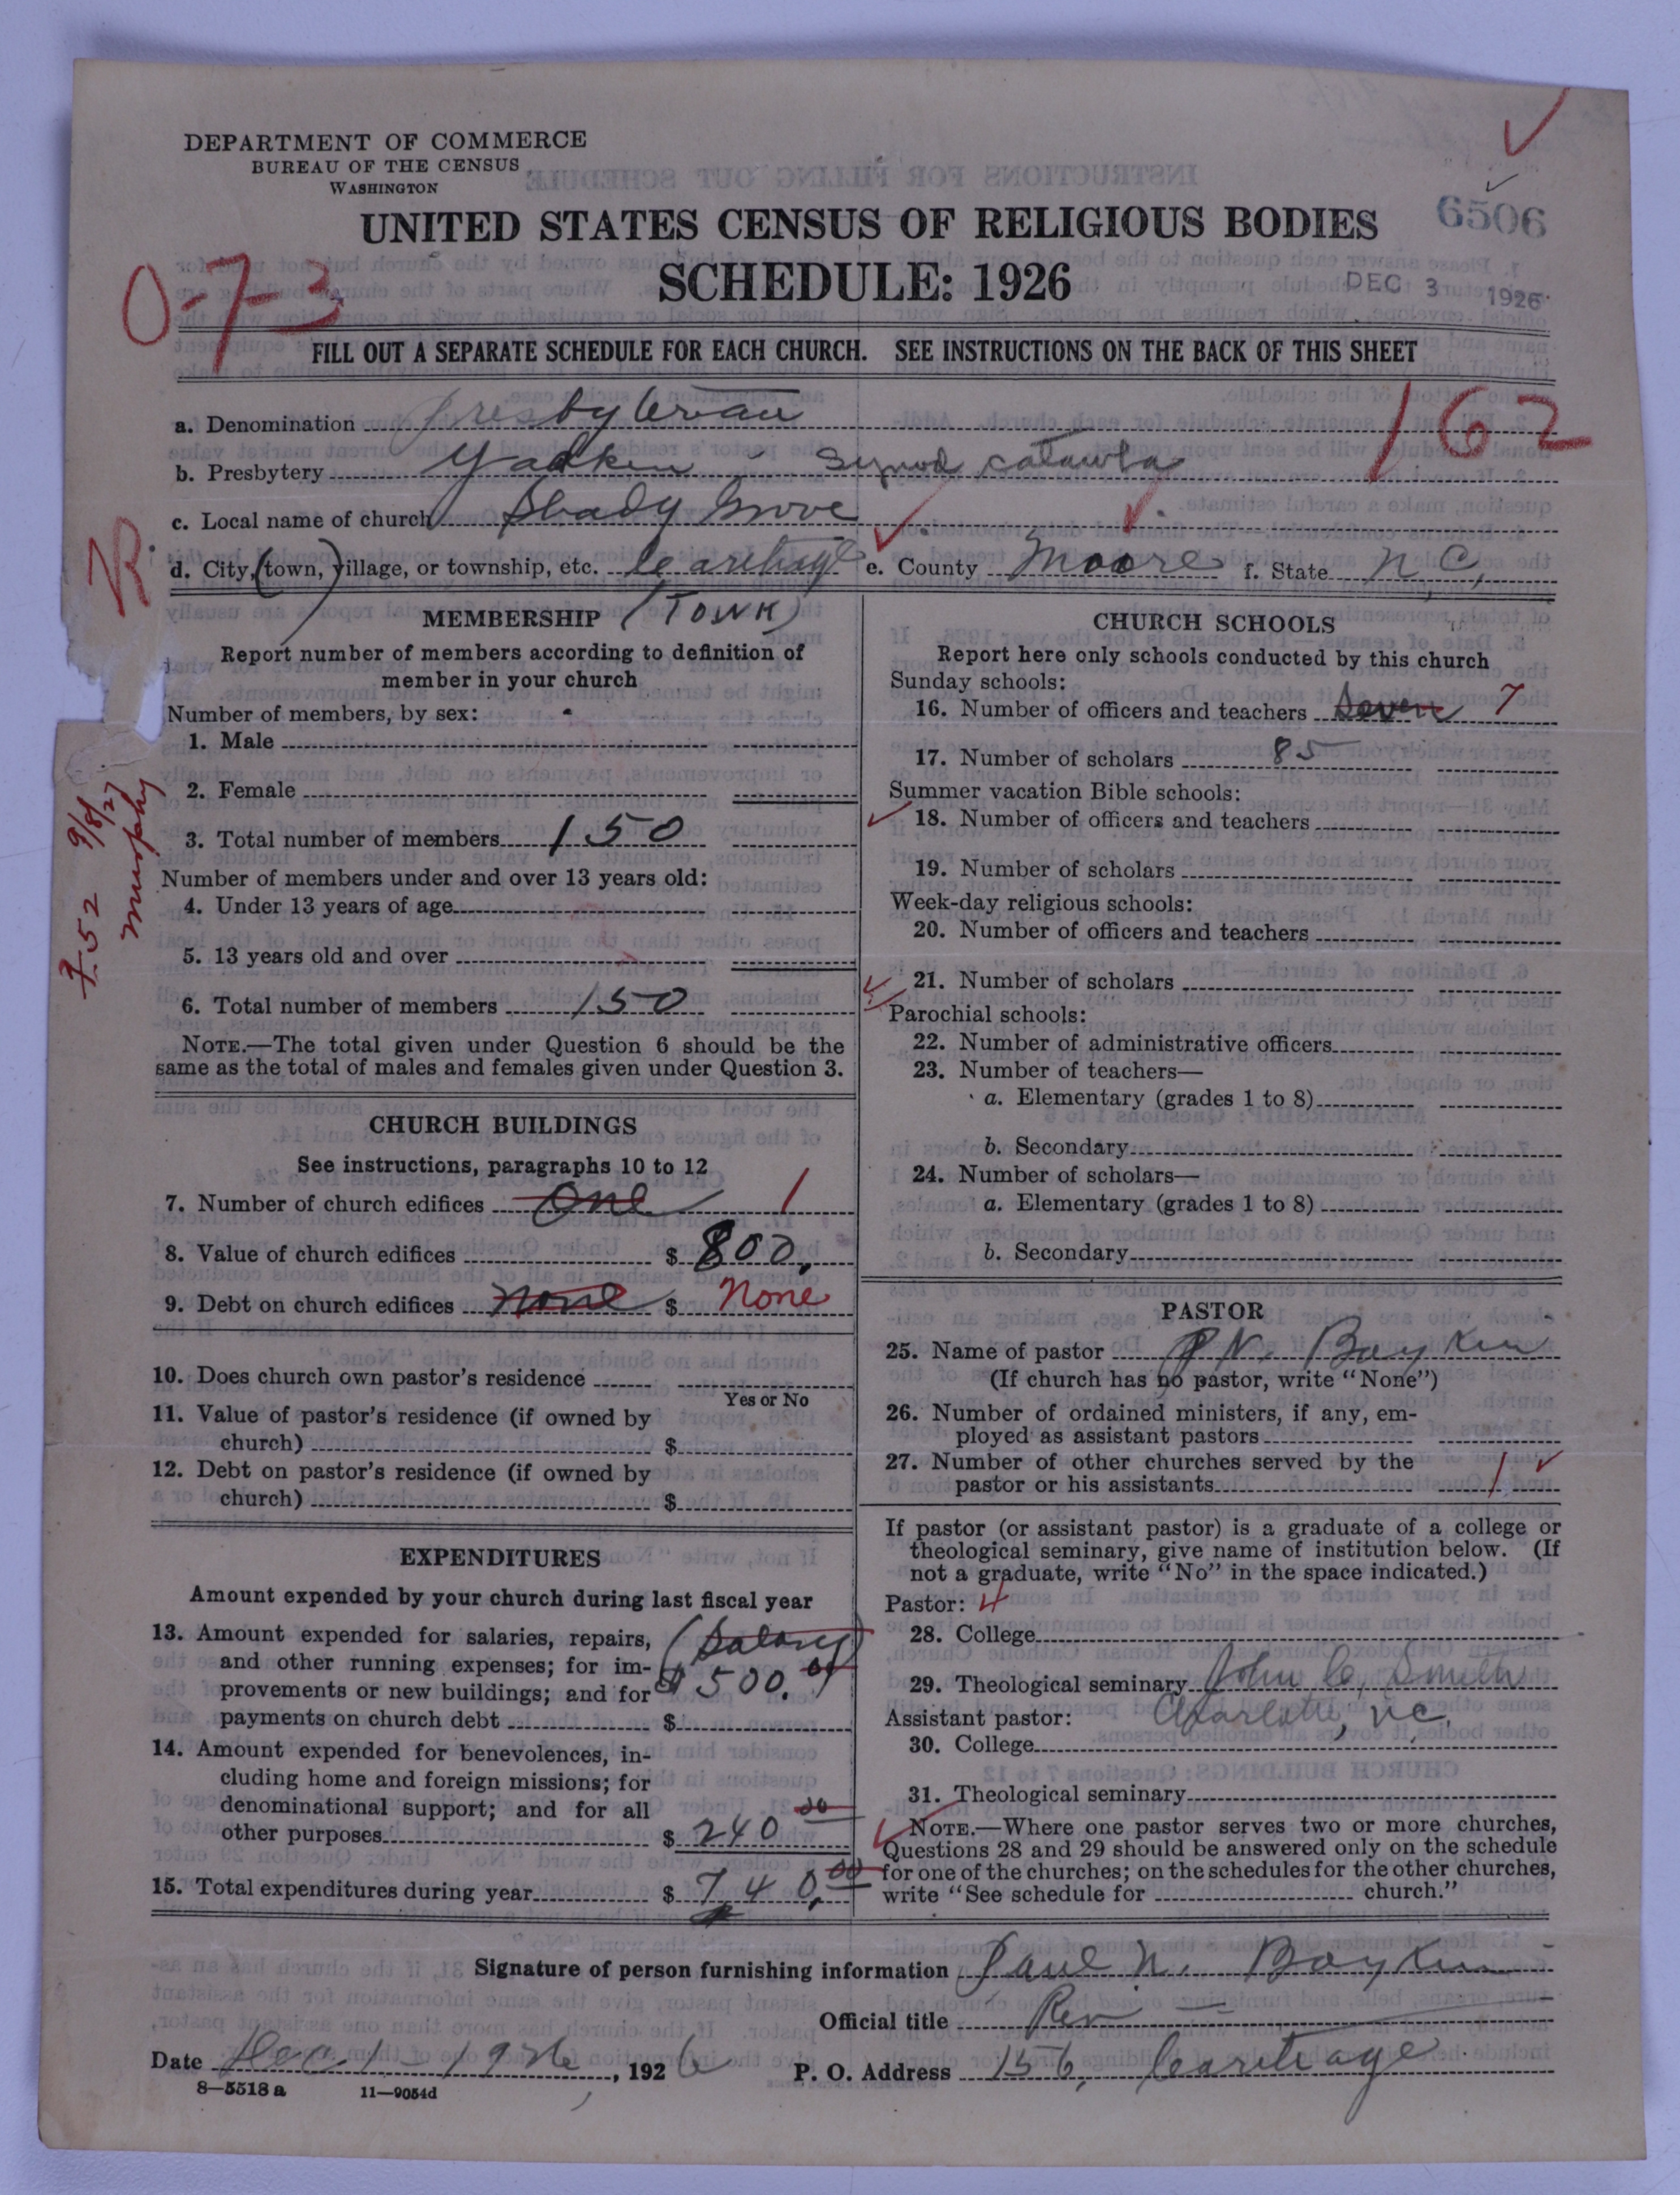 DEPARTMENT OF COMMERCE
BUREAU OF THE CENSUS
WASHINGTON
UNITED STATES CENSUS OF RELIGIOUS BODIES
6506
SCHEDULE: 1926
DEC 3 1926
0-7-3
FILL OUT A SEPARATE SCHEDULE FOR EACH CHURCH. SEE INSTRUCTIONS ON THE BACK OF THIS SHEET
162
a. Denomination Presbyterian
b. Presbytery Yadkin - Synod Catawba
c. Local name of church Shady Grove
d. City, (town,) village, or township, etc. Carthage e. County Moore f. State N.C.
R
MEMBERSHIP (TOWN)
Report number of members according to definition of
member in your church
Number of members, by sex:
1. Male
2. Female
3. Total number of members 150
Number of members under and over 13 years old:
4. Under 13 years of age
5. 13 years old and over
6. Total number of members 150
NOTE.—The total given under Question 6 should be the
same as the total of males and females given under Question 3.
752 9/8/27
Murphy
CHURCH BUILDINGS
See instructions, paragraphs 10 to 12
7. Number of church edifices One 1
8. Value of church edifices $ 800.
9. Debt on church edifices None $ None
10. Does church own pastor's residence
Yes or No
11. Value of pastor's residence (if owned by
church) $
12. Debt on pastor's residence (if owned by
church) $
EXPENDITURES
Amount expended by your church during last fiscal year
13. Amount expended for salaries, repairs, (Salary)
and other running expenses; for im-
provements or new buildings; and for $500.00
payments on church debt $
14. Amount expended for benevolences, in-
cluding home and foreign missions; for
denominational support; and for all
other purposes $ 240 00
15. Total expenditures during year $ 740.00
CHURCH SCHOOLS
Report here only schools conducted by this church
Sunday schools:
16. Number of officers and teachers Seven 7
17. Number of scholars 85
Summer vacation Bible schools:
18. Number of officers and teachers
19. Number of scholars
Week-day religious schools:
20. Number of officers and teachers
21. Number of scholars
Parochial schools:
22. Number of administrative officers
23. Number of teachers—
a. Elementary (grades 1 to 8)
b. Secondary
24. Number of scholars—
a. Elementary (grades 1 to 8)
b. Secondary
PASTOR
25. Name of pastor P. N. Boykin
(If church has no pastor, write "None")
26. Number of ordained ministers, if any, em-
ployed as assistant pastors
27. Number of other churches served by the
pastor or his assistants 1
If pastor (or assistant pastor) is a graduate of a college or
theological seminary, give name of institution below. (If
not a graduate, write "No" in the space indicated.)
Pastor: 4
28. College
29. Theological seminary John C. Smith
Assistant pastor: Charlotte, N.C.
30. College
31. Theological seminary
NOTE.—Where one pastor serves two or more churches,
Questions 28 and 29 should be answered only on the schedule
for one of the churches; on the schedules for the other churches,
write "See schedule for church."
Signature of person furnishing information Paul N. Boykin
Official title Rev
Date Dec. 1 - 1926, 1926 P. O. Address 156, Carthage
8—5518 a 11—9054d